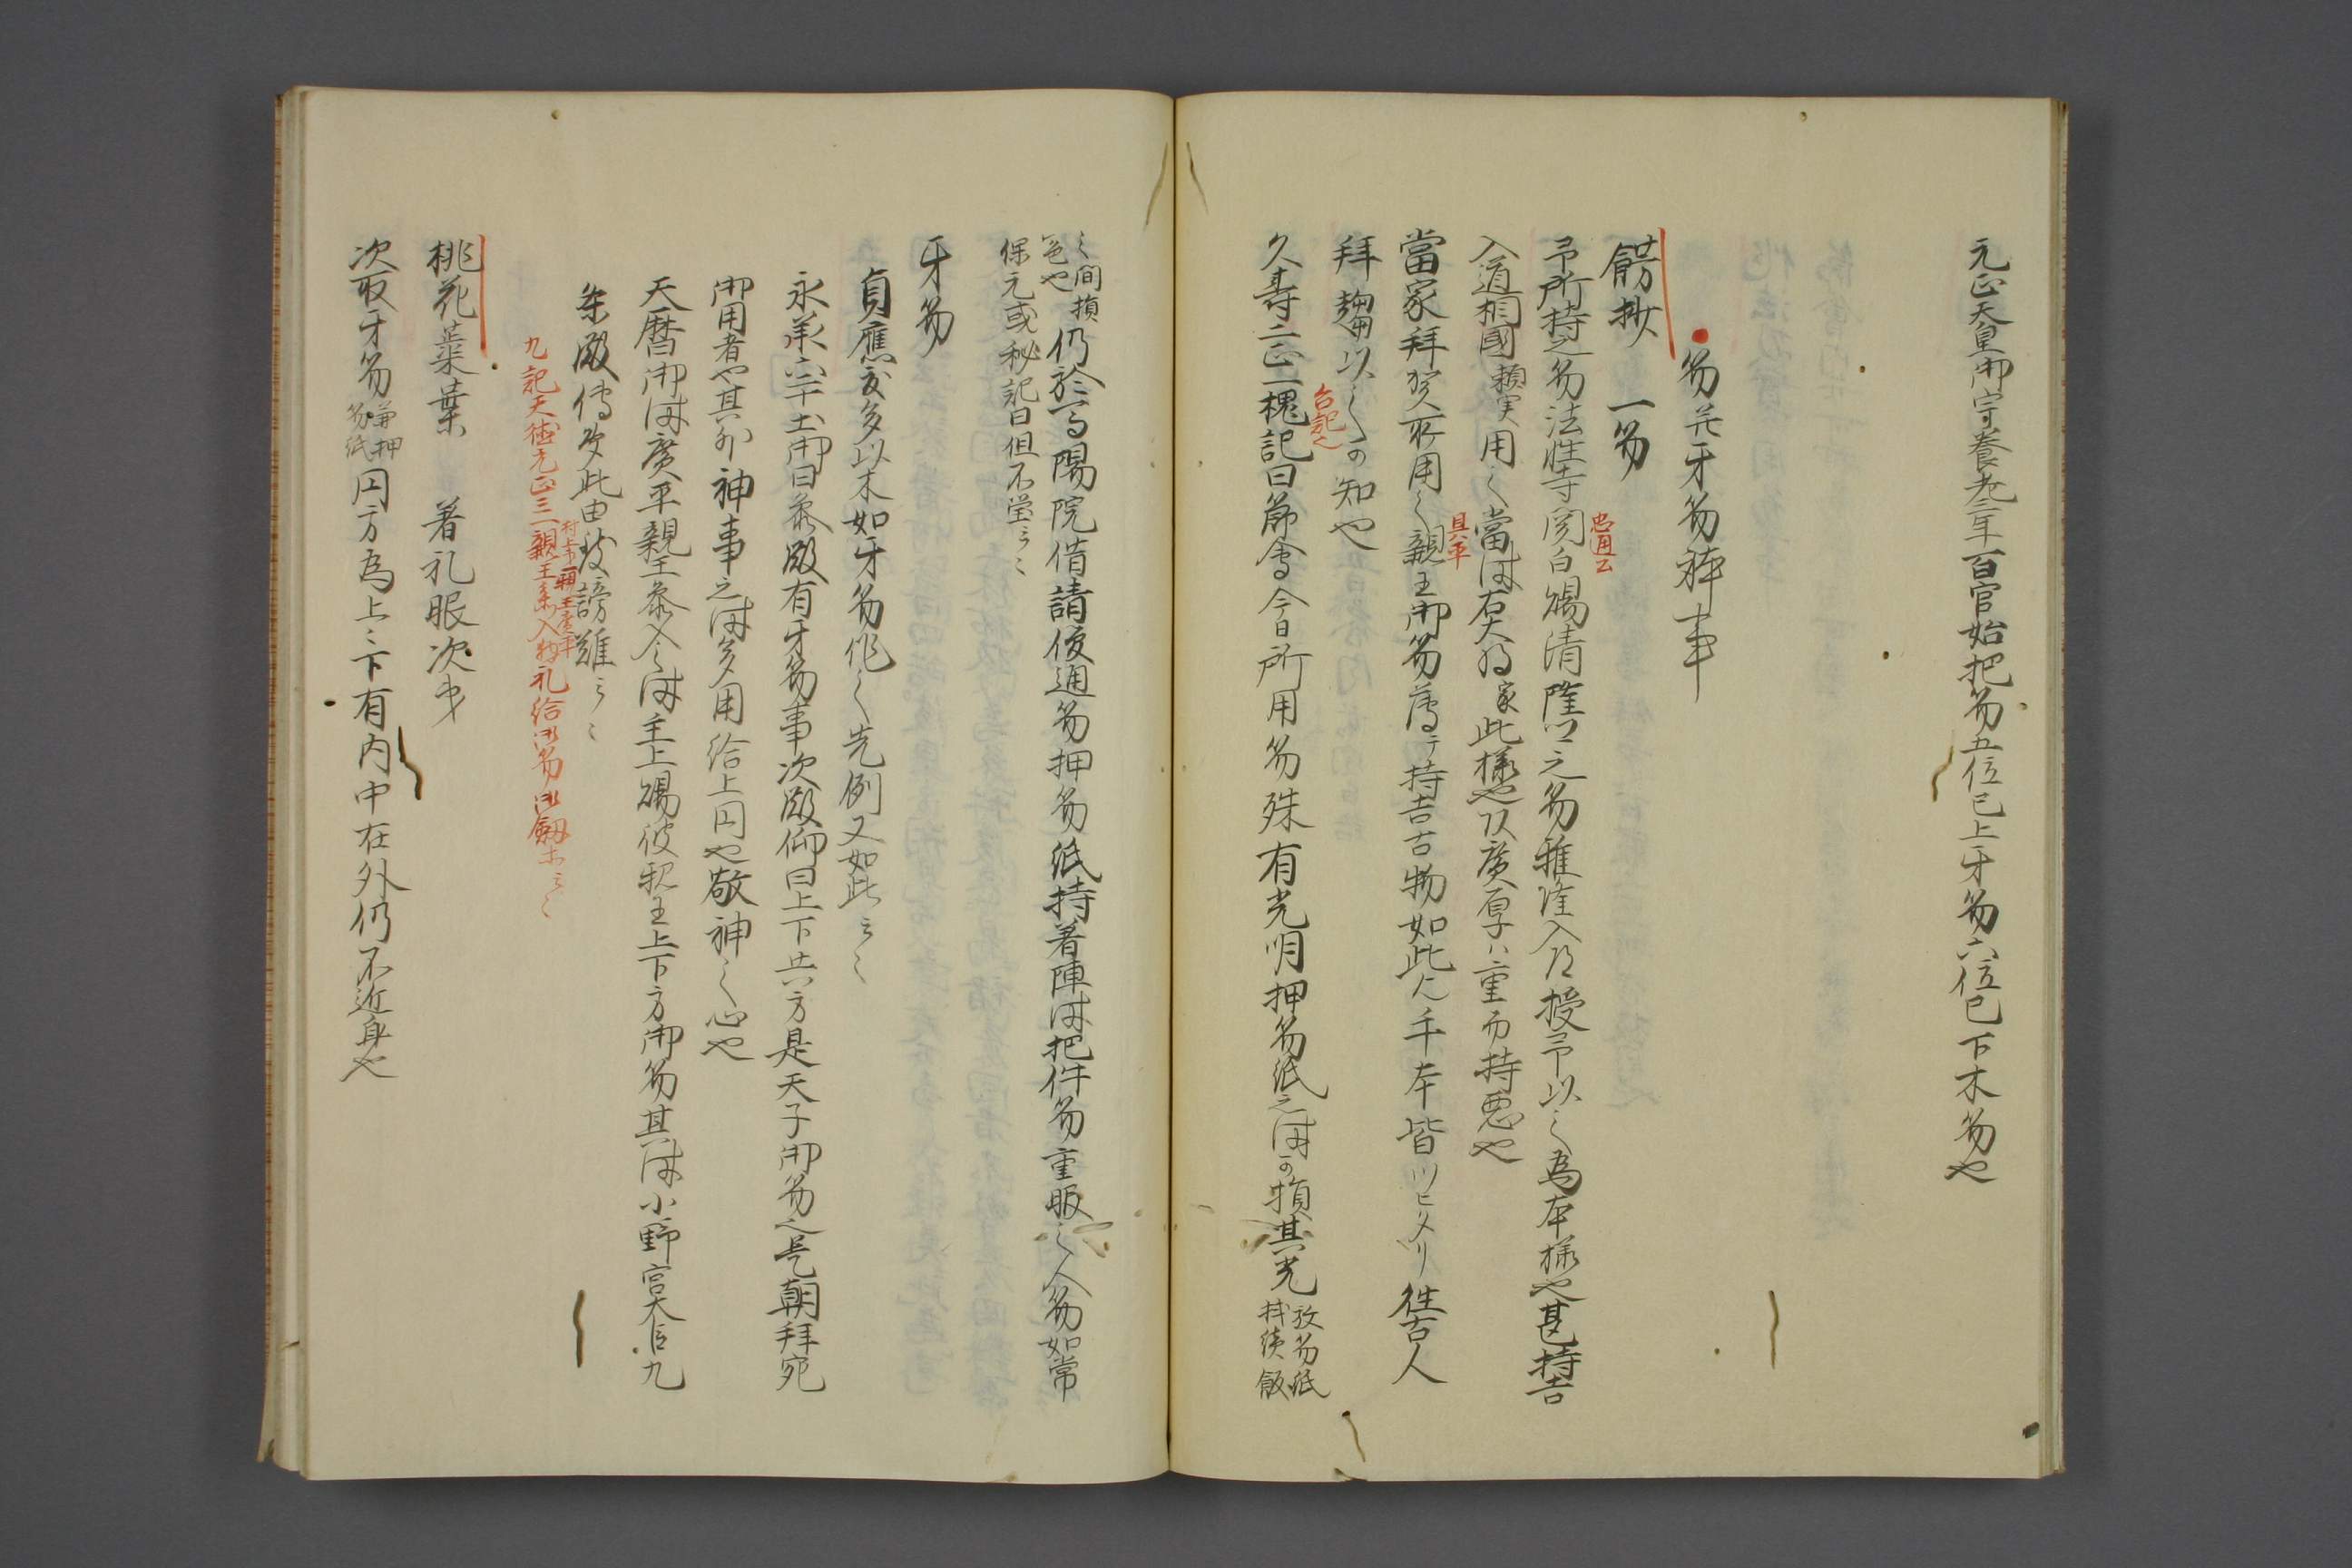 元正天皇御宇養老三年百官始把笏五位已上牙笏六位已下木笏也
笏并牙笏稱事
餝抄 一笏
予所持之笏法性寺関白賜清隆卿之笏雅隆入道授予以之為本様也甚持吉
忠通公
入道相國頼実用之當時右大将家此様也以廣厚ハ重而持悪也
當家拝賀所用之親王御笏薄テ持吉古物如此 手本皆ツヒタリ往古人
具平
拝趨以之可知也
台記
久寿二正一槐記曰節會今日所用笏殊有光明押笏紙之時可損其光放笏紙拭續飯
之間損色也仍於高陽院借請俊通笏押笏紙持着陣時把件笏重服之人笏如常
保元或秘記曰但不瑩云々
牙笏
貞應度多以木如牙笏作之先例又如此云々
永承六年十二土御日参殿有牙笏事次殿仰曰上下共方是天子御笏之是朝拝宛
御用者也其外神事之時多用給上円也敬神之心也
天暦御時廣平親王参入時主上賜彼親王上下方御笏其時小野宮大臣九
条殿傳多此由被謗難云々
九記天徳元正三親王参入拝礼給御笏御劔等云々
桃花蘂葉 着礼服次第
次取牙笏兼押笏紙円方為上々下有内中在外仍不近身也